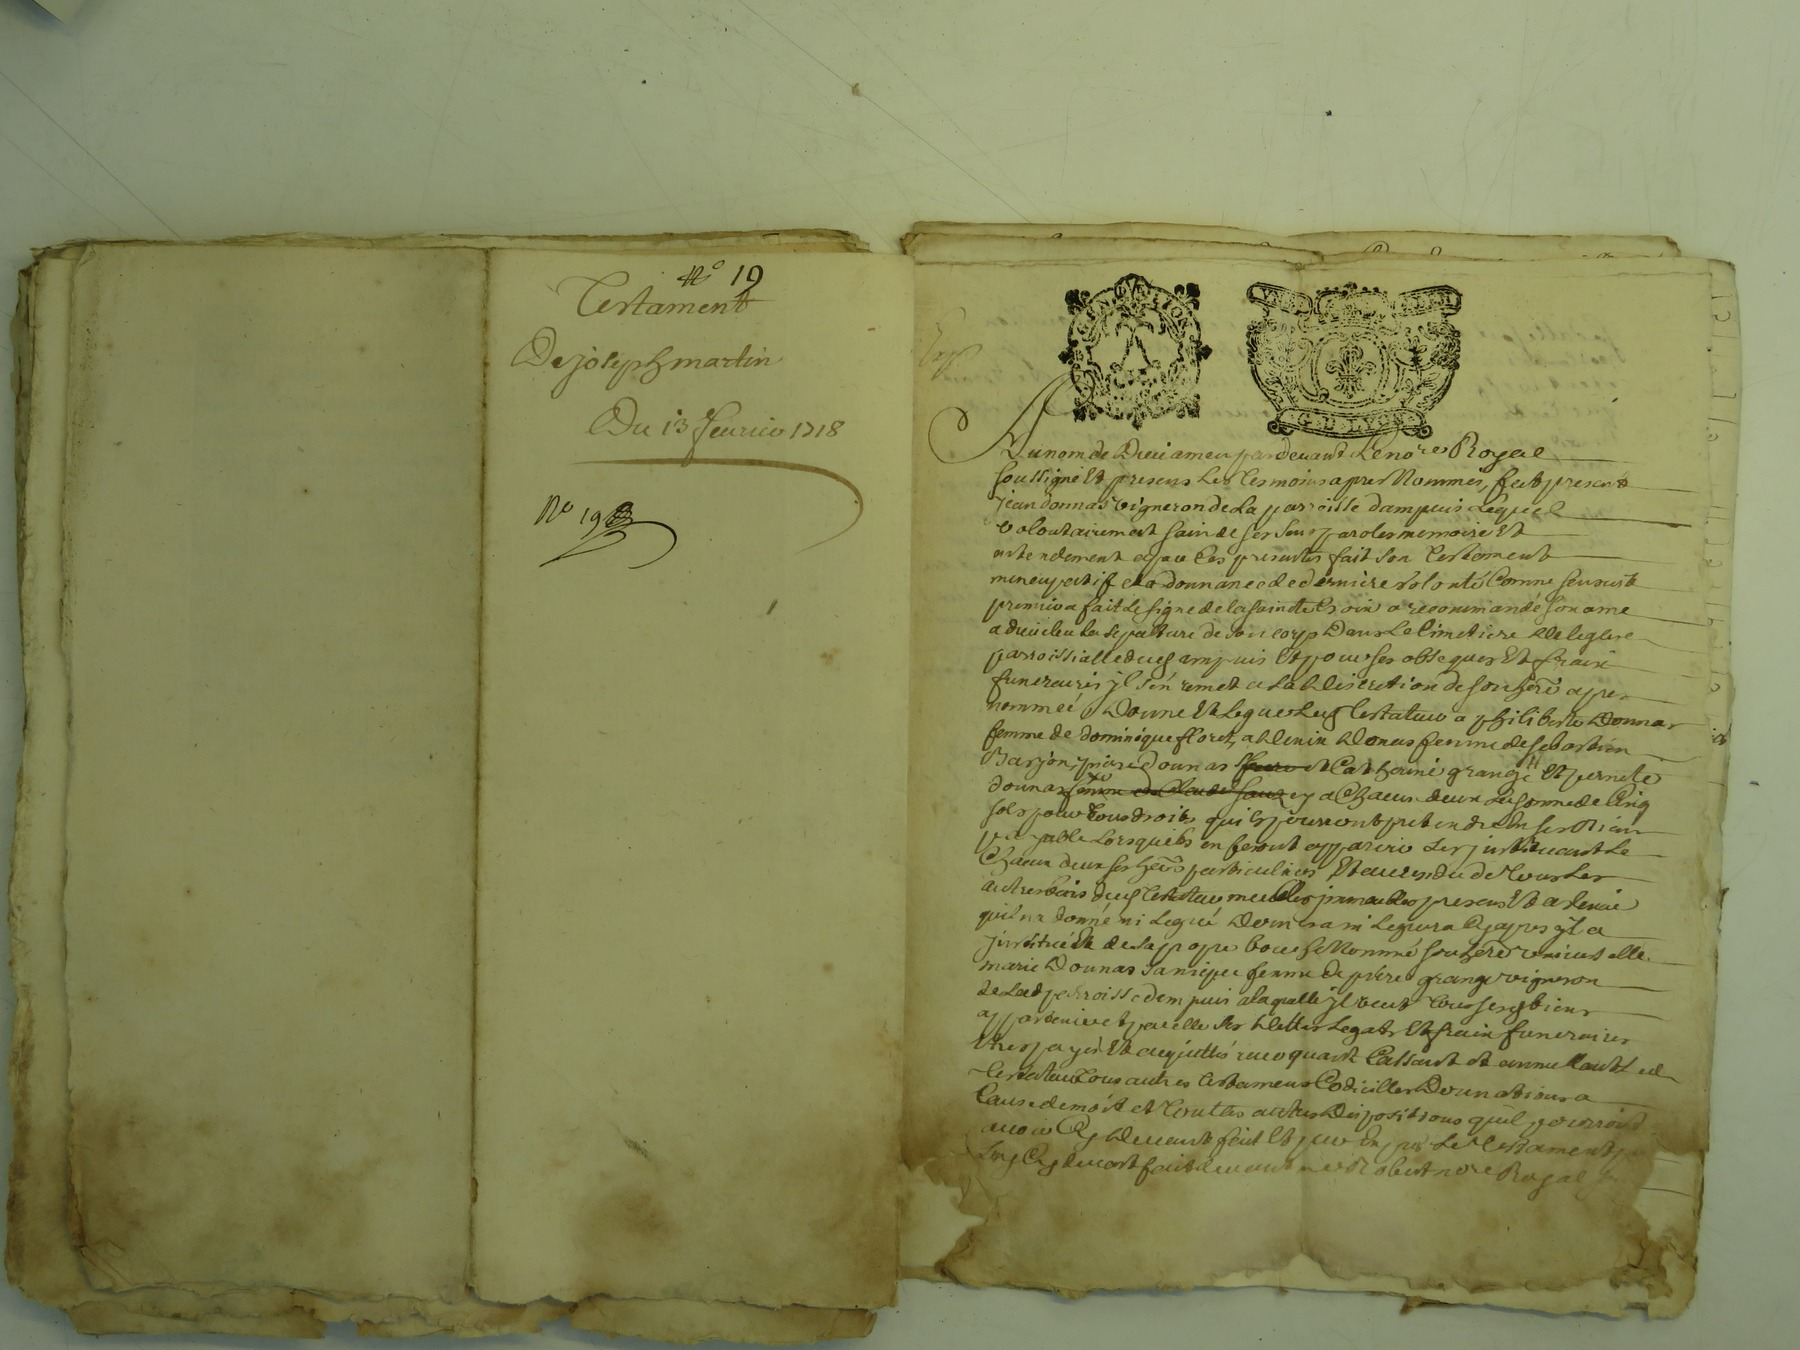 N° 19
Testament
De joseph martin
Du 13 feurier 1718
No 19
G D LYON
Au nom de Dieu amen pardeuant Le no.re Royal
soussigné Et presens Les Tesmoins apres Nommés, fut present
jean donnas vigneron de La parroisse dampuis Lequel
volontairement sain de ses sens parolles memoire Et
entendement a par Ces presentes fait son Testament
nuncupatif et ordonnance de derniere volonté Comme sensuit
premier a fait Le signe de la sainte Croix a recommandé son ame
a dieu eleu La sepulture de son corps Dans Le Cimetiere de leglise
parroissialle dud ampuis Et pour ses obseques Et fraix
funeraires jl sen remet a La Discretion de son here apres
nommeé, Donne Et Legue Led Testateur a philiberte Donnas
femme de dominique floret, a Donas femme de sebastien
Barjon, piere dounas frere et Catherine grange Et pernete
dounas femme de Claude a Chacun deux La somme de Cinq
sols pour tous droits quils pourront pretendre En ses Biens
payable Lorsquils en feront apparoir Les jnstituant Le
Chacun deux ses heres particuliers Et au residu de Tous Les
autres biens dud Testateur meubles jmmeubles presens Et a venir
quil na donné ni Legué Donnera ni Leguera Cy apres jl a
jnstitué Et de sa propre bouche Nommé son here universelle
marie Dounas sa niepce femme de piere grange vigneron
de Lad parroisse dampuis a laquelle jl veut Tous sesd biens
appartenir et par elle ses Dettes Legats Et fraix funeraires
Etre payés Et acquittés reuoquant Cassant et annullant Led
Testateur Tous autres Testamens Codicilles Donnations a
Cause de mort et Toutes autres Dispositions quil pourroit
auoir Cy Deuant fait Et par Le Testament
Cy deuant fait deuant me Robert no.re Royal